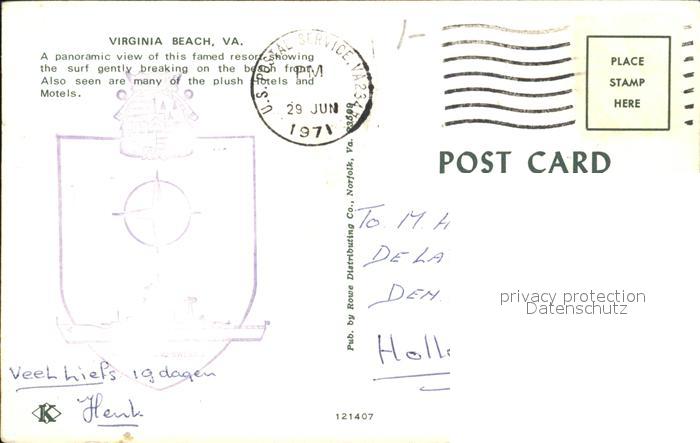 VIRGINIA BEACH, VA.
A panoramic view of this famed resort showing
the surf gently breaking on the beach front.
Also seen are many of the plush Hotels and
Motels.
U.S. POSTAL SERVICE, VA
PM
29 JUN
1971
PLACE
STAMP
HERE
POST CARD
Pub. by Rowe Distributing Co., Norfolk, Va.
To M. H
DE LA
DEN.
Holl
privacy protection
Datenschutz
Veel liefs 19 dagen
Henk
K
121407